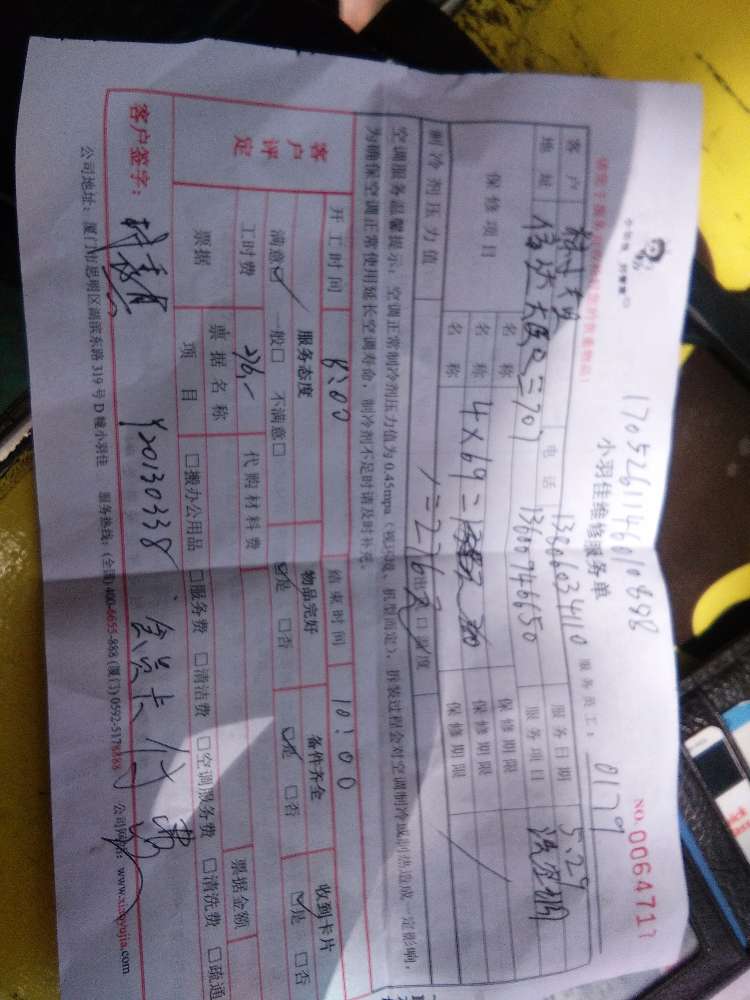 170526114601089B
小羽佳维修服务单
服务员工: 0179
NO. 0064717
客户
电话 13806034110
服务日期 5.29
地址 信达大厦
13600746650
服务项目
保修项目
名称
保修期限
名称 4×69=
保修期限
制冷剂压力值
1=276元
空调服务温馨提示:空调正常制冷剂压力值为0.45mpa(视环境、机型而定),拆装过程会对空调制冷或制热造成一定影响,
为确保空调正常使用延长空调寿命,制冷剂不足时请及时补充。
开工时间 8:00 结束时间 10:00
客户评定
服务态度 物品完好 备件齐全 收到卡片
满意☑ 一般□ 不满意□ ☑是 □否 ☑是 □否 ☑是 □否
工时费 276,- 代购材料费
票据 票据名称 票据金额
项目 □搬办公用品 □服务费 □清洁费 □空调服务费 □清洗费 □疏通
客户签字: Y20130338 会员卡付费
公司地址:厦门市思明区湖滨东路319号D幢小羽佳 服务热线:(全国)400-6655-888 (厦门)0592-5178888 公司网站:www.xiaoyujia.com